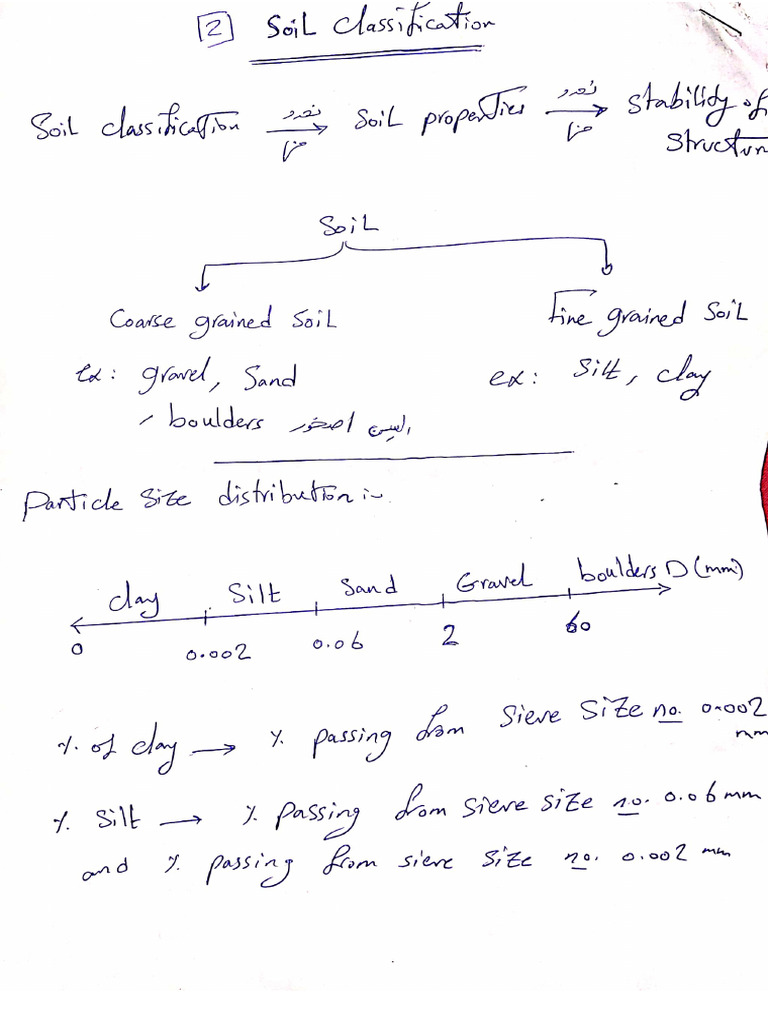 2 Soil classification
Soil classification → Soil properties → Stability of
structure
Soil
Coarse grained Soil Fine grained Soil
ex: gravel, Sand ex: Silt, clay
, boulders
Particle Size distribution :-
clay Silt Sand Gravel boulders D (mm)
0 0.002 0.06 2 60
% of clay → % passing from Sieve Size no. 0.002
mm
% Silt → % passing from sieve size no. 0.06 mm
and % passing from sieve size no. 0.002 mm